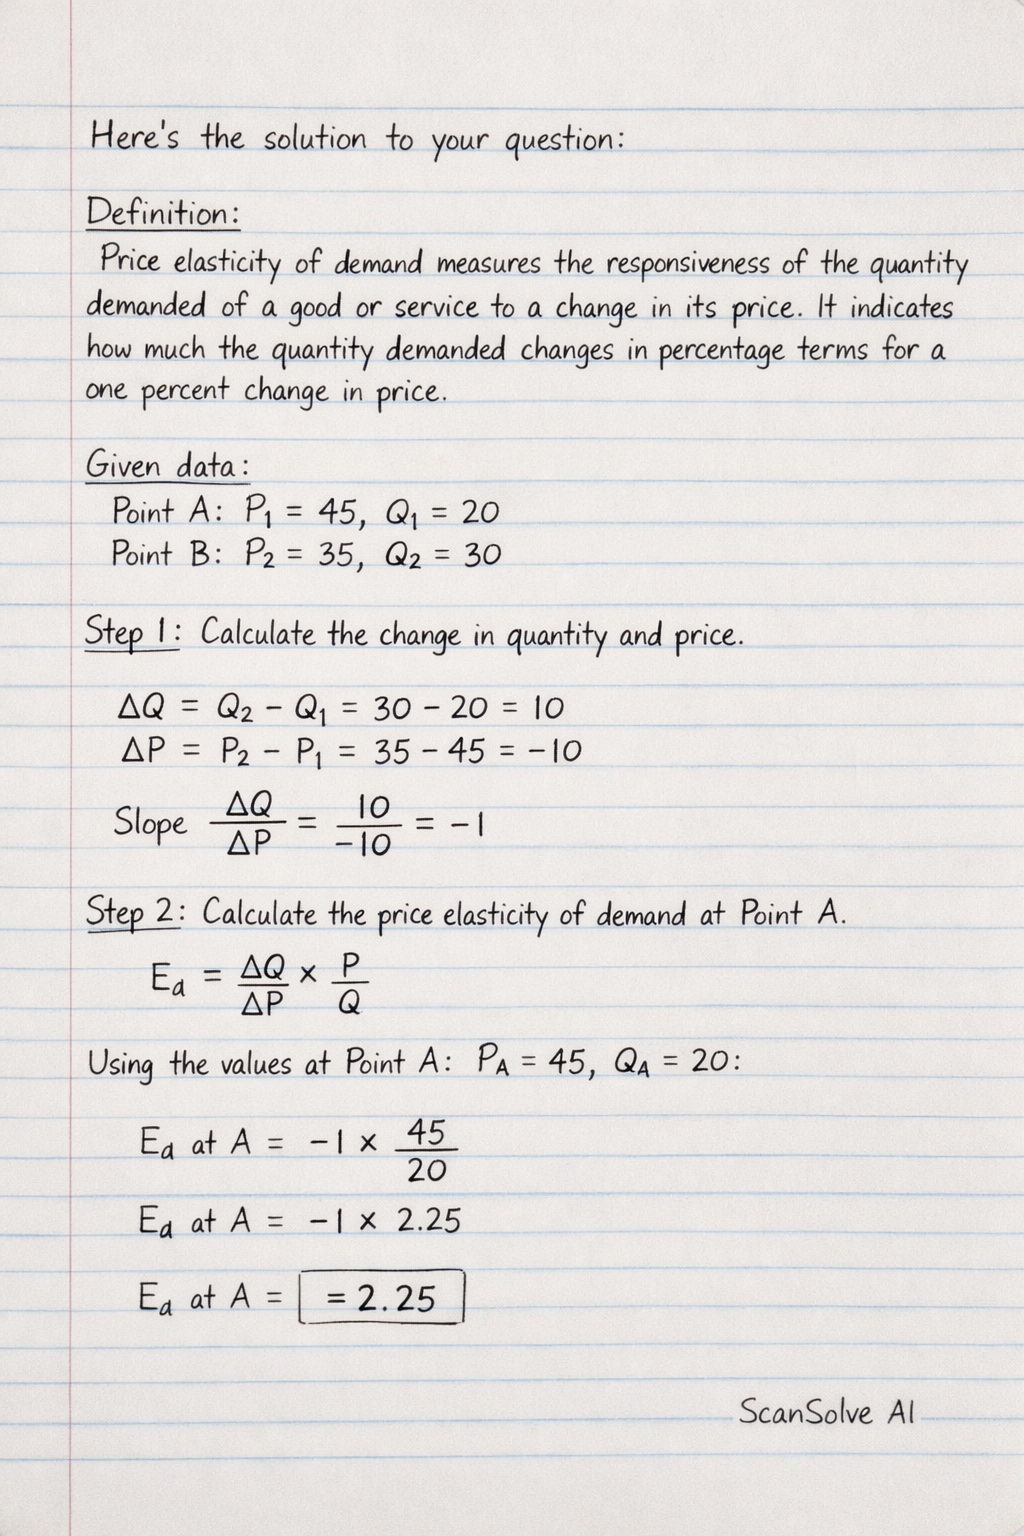 Here's the solution to your question:
Definition:
Price elasticity of demand measures the responsiveness of the quantity
demanded of a good or service to a change in its price. It indicates
how much the quantity demanded changes in percentage terms for a
one percent change in price.
Given data:
Point A: P₁ = 45, Q₁ = 20
Point B: P₂ = 35, Q₂ = 30
Step 1: Calculate the change in quantity and price.
ΔQ = Q₂ − Q₁ = 30 − 20 = 10
ΔP = P₂ − P₁ = 35 − 45 = −10
Slope ΔQ/ΔP = 10/−10 = −1
Step 2: Calculate the price elasticity of demand at Point A.
Ed = ΔQ/ΔP × P/Q
Using the values at Point A: PA = 45, QA = 20:
Ed at A = −1 × 45/20
Ed at A = −1 × 2.25
Ed at A = = 2.25
ScanSolve AI